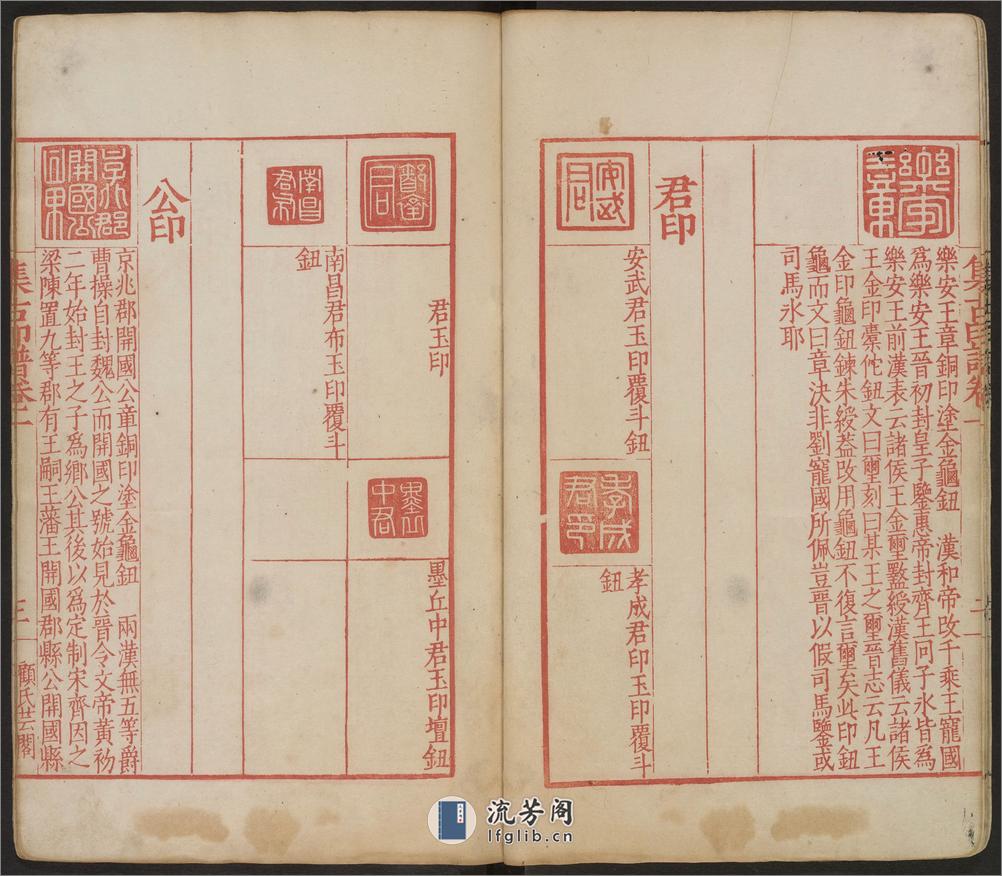 集古印譜卷一 二
樂安王章
樂安王章銅印塗金龜鈕　漢和帝改千乘王寵國
爲樂安王晉初封皇子鑒惠帝封齊王冏子氷皆爲
樂安王前漢表云諸侯王金璽盭綬漢舊儀云諸侯
王金印橐佗鈕文曰璽刻曰某王之璽晉志云凡王
金印龜鈕鍊朱綬葢改用龜鈕不復言璽矣此印鈕
龜而文曰章決非劉寵國所佩豈晉以假司馬鑒或
司馬氷耶
君印
安武君
安武君玉印覆斗鈕
孝成君印
孝成君印玉印覆斗
鈕
君玉印
墨丘中君
墨丘中君玉印壇鈕
南昌君布
南昌君布玉印覆斗
鈕
公印
京兆郡開國公章
京兆郡開國公章銅印塗金龜鈕　兩漢無五等爵
曹操自封魏公而開國之號始見於晉令文帝黃初
二年始封王之子爲鄉公其後以爲定制宋齊因之
梁陳置九等郡有王嗣王藩王開國郡縣公開國縣
集古印譜卷一 三 顧氏芸閣
流芳阁
lfglib.cn